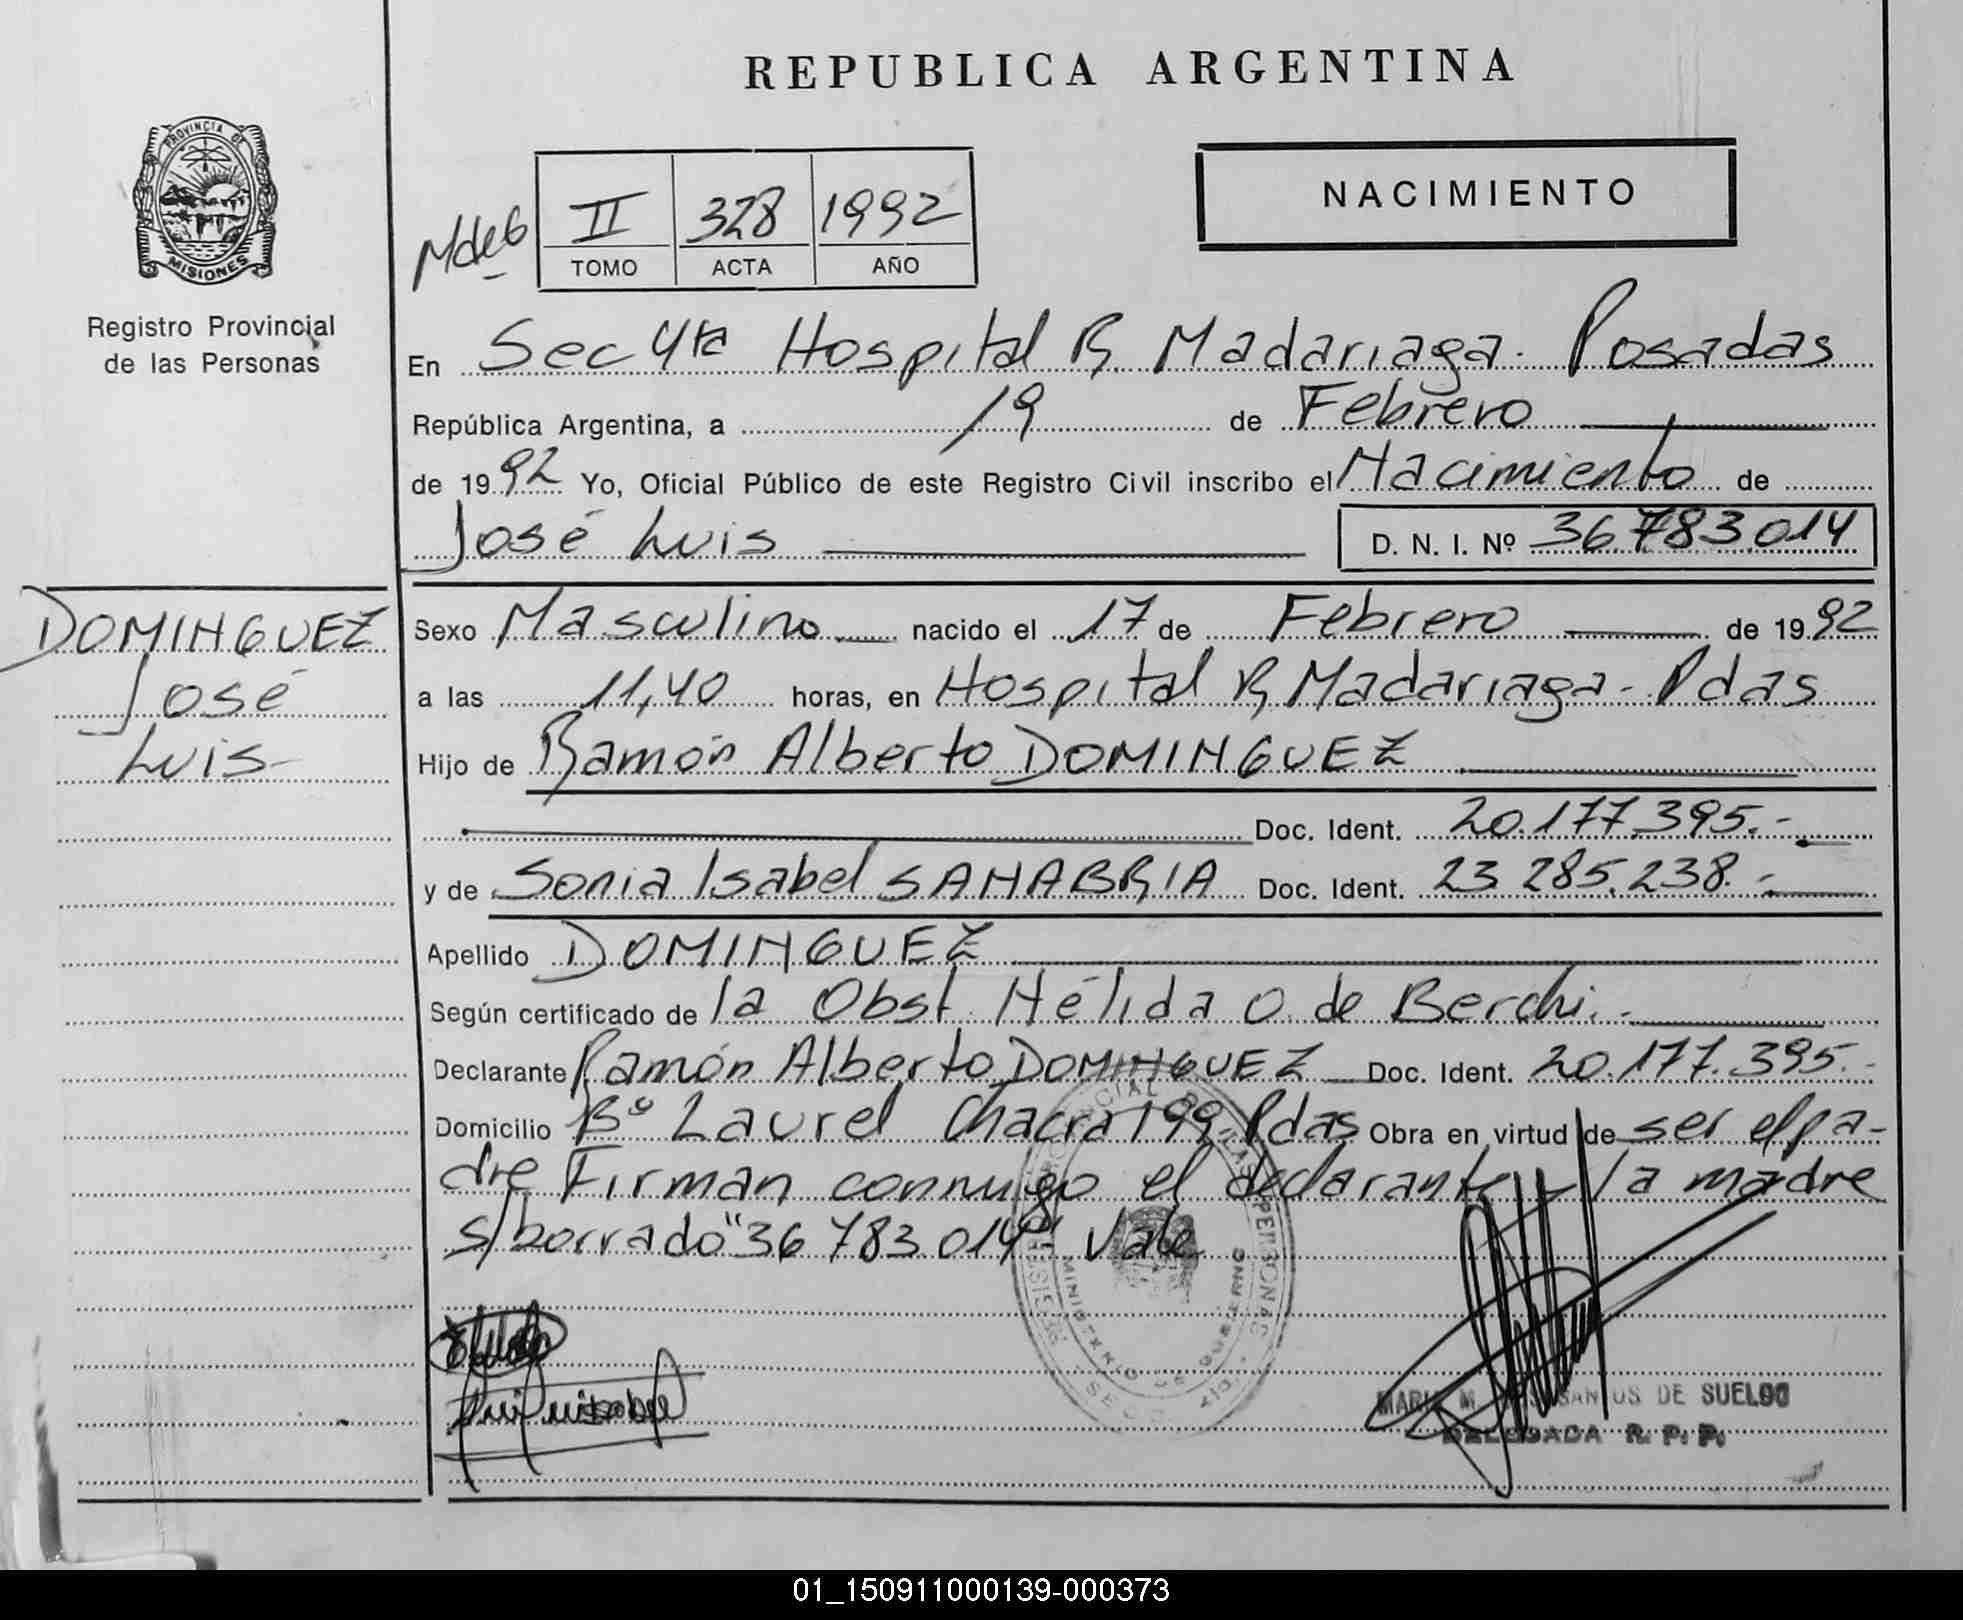 REPUBLICA ARGENTINA
PROVINCIA DE
MISIONES
Registro Provincial
de las Personas
NACIMIENTO
II 328 1992
TOMO ACTA AÑO
En Sec 4ta Hospital R. Madariaga. Posadas
República Argentina, a 19 de Febrero
de 1992 Yo, Oficial Público de este Registro Civil inscribo el Nacimiento de
José Luis D. N. I. Nº 36.783.014
DOMINGUEZ
José
Luis
Sexo Masculino nacido el 17 de Febrero de 1992
a las 11,40 horas, en Hospital R. Madariaga - Pdas
Hijo de Ramón Alberto DOMINGUEZ
Doc. Ident. 20.177.395.-
y de Sonia Isabel SANABRIA Doc. Ident. 23 285.238.-
Apellido DOMINGUEZ
Según certificado de la Obst. Nélida O. de Berchi.-
Declarante Ramón Alberto DOMINGUEZ Doc. Ident. 20.177.395.-
Domicilio Bº Laurel Chacra 199 Pdas Obra en virtud de ser el pa-
dre Firman conmigo el declarante y la madre
s/borrado "36 783 014" Vale
DE SUELDO
DELEGADA R. P. P.
01_150911000139-000373